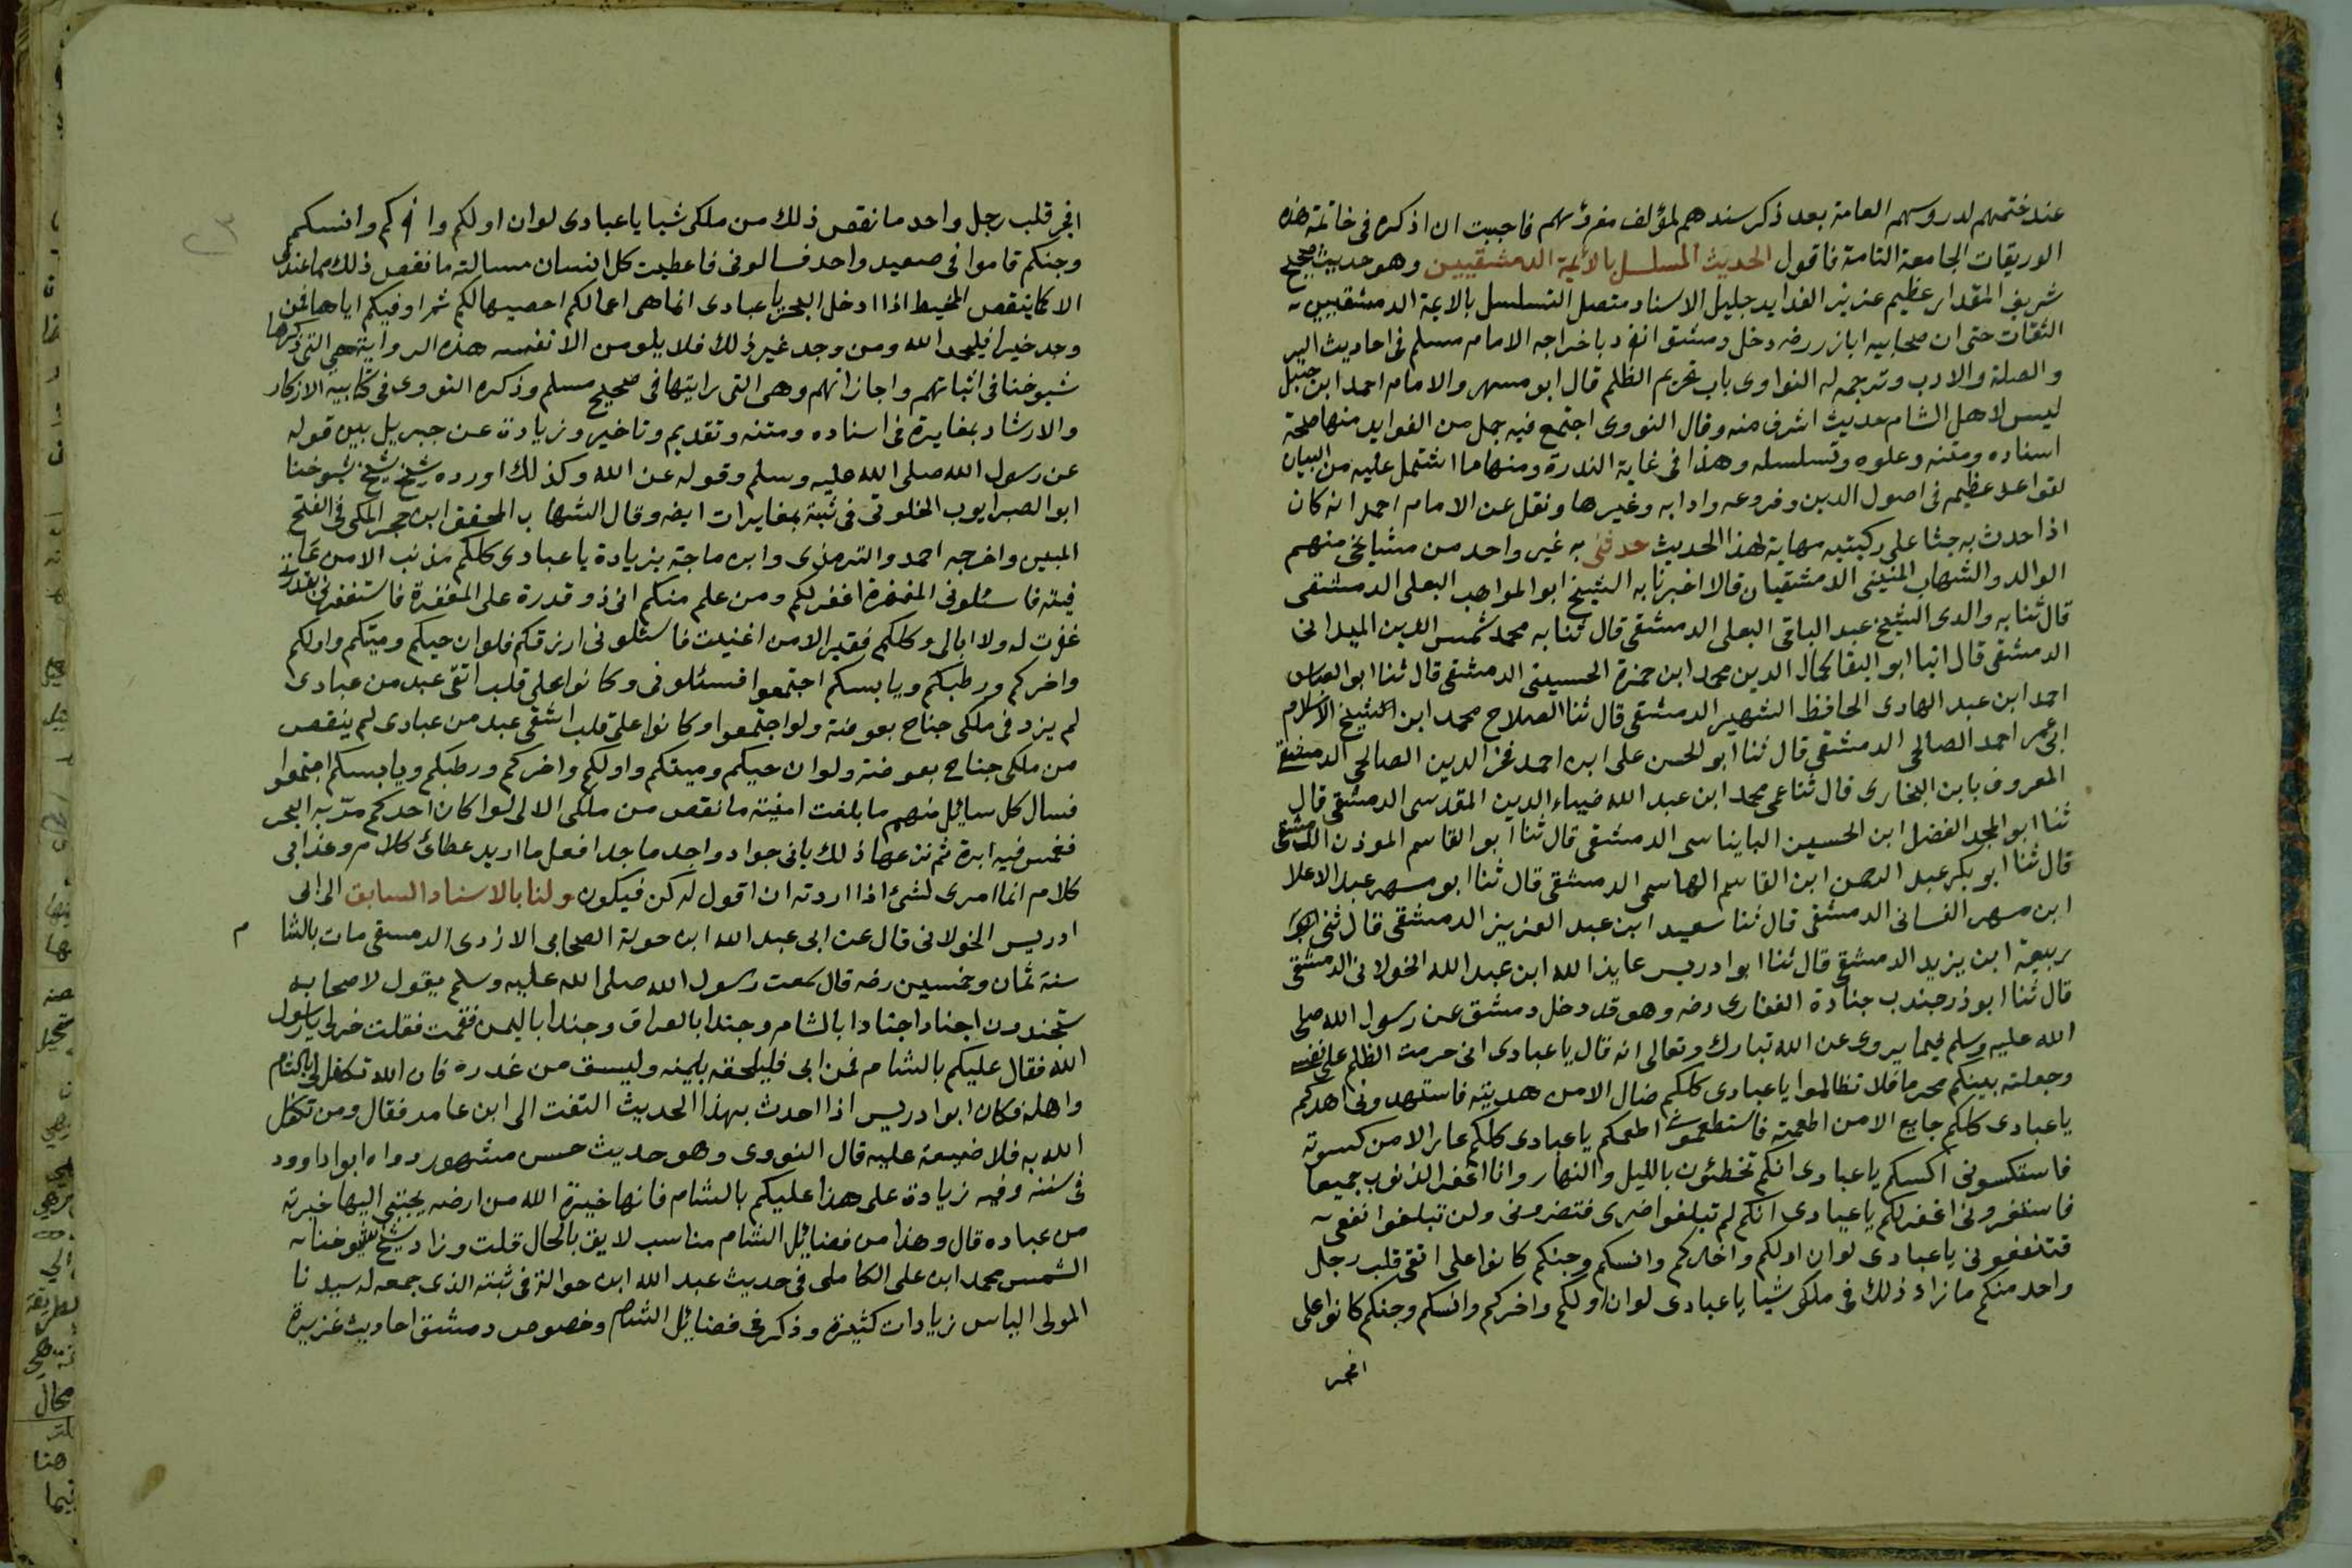 عند ختمهم لدروسهم العامة بعد ذكر سندهم لمؤلف مقرؤهم فاحببت ان اذكره فى خاتمة هذه
الوريقات الجامعة التامة فاقول الحديث المسلسل بالائمة الدمشقيين وهو حديث صحيح
شريف المقدار عظيم عزيز الفوايد جليل الاسناد متصل التسلسل بالايمة الدمشقيين
الثقات حتى ان صحابيه اباذر رضه دخل دمشق انفرد باخراجه الامام مسلم فى احاديث البر
والصلة والادب وترجم له النواوى باب تحريم الظلم قال ابو مسهر والامام احمد ابن حنبل
ليس لاهل الشام حديث اشرف منه وقال النووى اجتمع فيه جمل من الفوايد منها صحة
اسناده ومتنه وعلوه وتسلسله وهذا فى غاية الندرة ومنها ما اشتمل عليه من البيان
لقواعد عظيمه فى اصول الدين وفروعه وادابه وغيرها ونقل عن الامام احمد انه كان
اذا حدث به جثا على ركبتيه مهابة لهذا الحديث حدثنى به غير واحد من مشايخى منهم
الوالد والشهاب المنينى الدمشقيان قالا اخبرنا به الشيخ ابو المواهب البعلى الدمشقى
قال ثنا به والدى الشيخ عبد الباقى البعلى الدمشقى قال ثنا به محمد شمس الدين الميدانى
الدمشقى قال انبا ابو البقا كمال الدين محمد ابن حمزة الحسينى الدمشقى قال ثنا ابو العباس
احمد ابن عبد الهادى الحافظ الشهير الدمشقى قال ثنا الصلاح محمد ابن الشيخ الاسلام
ابى عمر احمد الصالحى الدمشقى قال ثنا ابو الحسن على ابن احمد فخر الدين الصالحى الدمشقى
المعروف بابن البخارى قال ثنا عمى محمد ابن عبد الله ضياء الدين المقدسى الدمشقى قال
ثنا ابو المجد الفضل ابن الحسين الباينياسى الدمشقى قال ثنا ابو القاسم الموذن الدمشقى
قال ثنا ابو بكر عبد الرحمن ابن القاسم الهاسمى الدمشقى قال ثنا ابو مسهر عبد الاعلا
ابن مسهر الغسانى الدمشقى قال ثنا سعيد ابن عبد العزيز الدمشقى قال ثنى
ربيعة ابن يزيد الدمشقى قال ثنا ابو ادريس عايذ الله ابن عبد الله الخولانى الدمشقى
قال ثنا ابو ذر جندب جنادة الغفارى رضه وهو قد دخل دمشق عن رسول الله صلى
الله عليه وسلم فيما يروى عن الله تبارك وتعالى انه قال يا عبادى انى حرمت الظلم على نفسى
وجعلته بينكم محرما فلا تظالموا يا عبادى كلكم ضال الا من هديته فاستهدونى اهدكم
يا عبادى كلكم جايع الا من اطعمته فاستطعمونى اطعمكم يا عبادى كلكم عار الا من كسوته
فاستكسونى اكسكم يا عبادى انكم تخطئون بالليل والنهار وانا اغفر الذنوب جميعا
فاستغفرونى اغفر لكم يا عبادى انكم لم تبلغوا ضرى فتضرونى ولن تبلغوا نفعى
فتنفعونى يا عبادى لو ان اولكم واخركم وانسكم وجنكم كانوا على اتقى قلب رجل
واحد منكم ما زاد ذلك فى ملكى شيا يا عبادى لو ان اولكم واخركم وانسكم وجنكم كانوا على
افجر
افجر قلب رجل واحد ما نقص ذلك من ملكى شيا يا عبادى لو ان اولكم واخركم وانسكم
وجنكم قاموا فى صعيد واحد فسالونى فاعطيت كل انسان مسالته ما نقص ذلك مما عندى
الا كما ينقص المخيط اذا ادخل البحر يا عبادى انما هى اعمالكم احصيها لكم ثم اوفيكم اياها فمن
وجد خيرا فليحمد الله ومن وجد غير ذلك فلا يلومن الا نفسه هذه الرواية هى التى ذكرها
شيوخنا فى اثباتهم واجازاتهم وهى التى رايتها فى صحيح مسلم وذكره النووى فى كتابيه الاذكار
والارشاد بمغايرة فى اسناده ومتنه وتقديم وتاخير وزيادة عن جبريل بين قوله
عن رسول الله صلى الله عليه وسلم وقوله عن الله وكذلك اورده شيخ شيخ شيوخنا
ابو الصبر ايوب الخلوتى فى ثبته بمغايرات ايضه وقال الشهاب المحقق ابن حجر المكى فى الفتح
المبين واخرجه احمد والترمذى وابن ماجة بزيادة يا عبادى كلكم مذنب الا من عا
فيته فاسئلونى المغفرة اغفر لكم ومن علم منكم انى ذو قدرة على المغفرة فاستغفرنى بقدرتى
غفرت له ولا ابالى وكلكم فقير الا من اغنيت فاسئلونى ارزقكم فلو ان حيكم وميتكم واولكم
واخركم ورطبكم ويابسكم اجتمعوا فسئلونى وكانوا على قلب اتقى عبد من عبادى
لم يزد فى ملكى جناح بعوضة ولو اجتمعوا وكانوا على قلب اشقى عبد من عبادى لم ينقص
من ملكى جناح بعوضة ولو ان حيكم وميتكم واولكم واخركم ورطبكم ويابسكم اجتمعوا
فسال كل سايل منهم ما بلغت امنيته ما نقص من ملكى الا لو كان احدكم مر به البحر
فغمس فيه ابرة ثم نزعها ذلك بانى جواد واجد ماجد افعل ما اريد عطائ كلام وعذابى
كلام انما امرى لشئ اذا اردته ان اقول له كن فيكون ولنا بالاسناد السابق الى ابى
ادريس الخولانى قال عن ابى عبد الله ابن حولة الصحابى الازدى الدمسقى مات بالشا م
سنة ثمان وخمسين رضه قال سمعت رسول الله صلى الله عليه وسلم يقول لاصحابه
ستجندون اجنادا اجنادا بالشام وجندا بالعراق وجندا باليمن فقمت فقلت خر لى يا رسول
الله فقال عليكم بالشام فمن ابى فليلحق بيمنه وليسق من غدره فان الله تكفل لى بالشام
واهله فكان ابو ادريس اذا احدث بهذا الحديث التفت الى ابن عامر فقال ومن تكفل
الله به فلا ضيعة عليه قال النووى وهو حديث حسن مشهور رواه ابوا داوود
فى سننه وفيه زيادة على هذا عليكم بالشام فانها خيرة الله من ارضه يجتبى اليها خيرته
من عباده قال وهذا من فضائل الشام مناسب لايق بالحال قلت وزاد شيخ شيوخنا
الشمس محمد ابن على الكاملى فى حديث عبد الله ابن حوالة فى ثبته الذى جمعه له سيدنا
المولى الياس زيادات كثيرة وذكر فى فضائل الشام وخصوص دمشق احاديث غزيرة